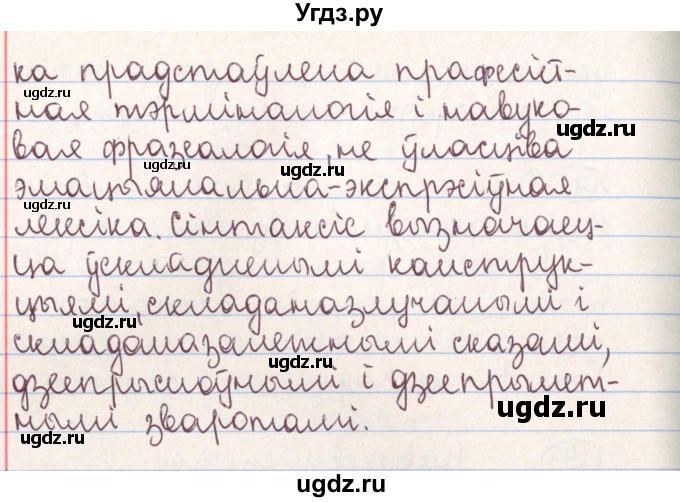 Угдз.ру
ка прадстаўлена прафесій-
ная тэрміналогія і навуко-
вая фразалогія, не ўласціва
эмацыянальна-экспрэсіўная
лексіка. Сінтаксіс вызначаец-
ца ўскладненымі канструк-
цыямі, складаназлучанымі і
складаназалежнымі сказамі,
дзеепрыслоўнымі і дзеепрымет-
нымі зваротамі.
ugdz.ru
ugdz.ru
ugdz.ru
ugdz.ru
ugdz.ru
ugdz.ru
ugdz.ru
ugdz.ru
ugdz.ru
ugdz.ru
ugdz.ru
Угдз.ру